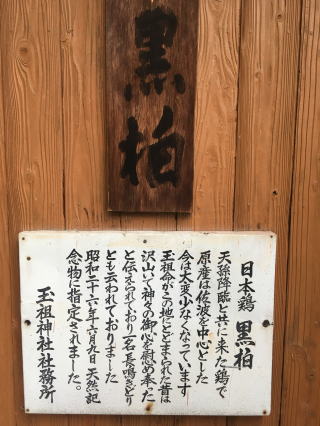 黒柏
日本鶏 黒柏
天孫降臨と共に来た鶏で
原産は佐波を中心とした
今は大変少なくなっています
玉祖命がこの地にとどまられた昔は
沢山いて神々の御心を慰め奉った
と伝えられており一名長鳴きどり
とも云われておりました
昭和二十六年六月九日天然記
念物に指定されました。
玉祖神社社務所